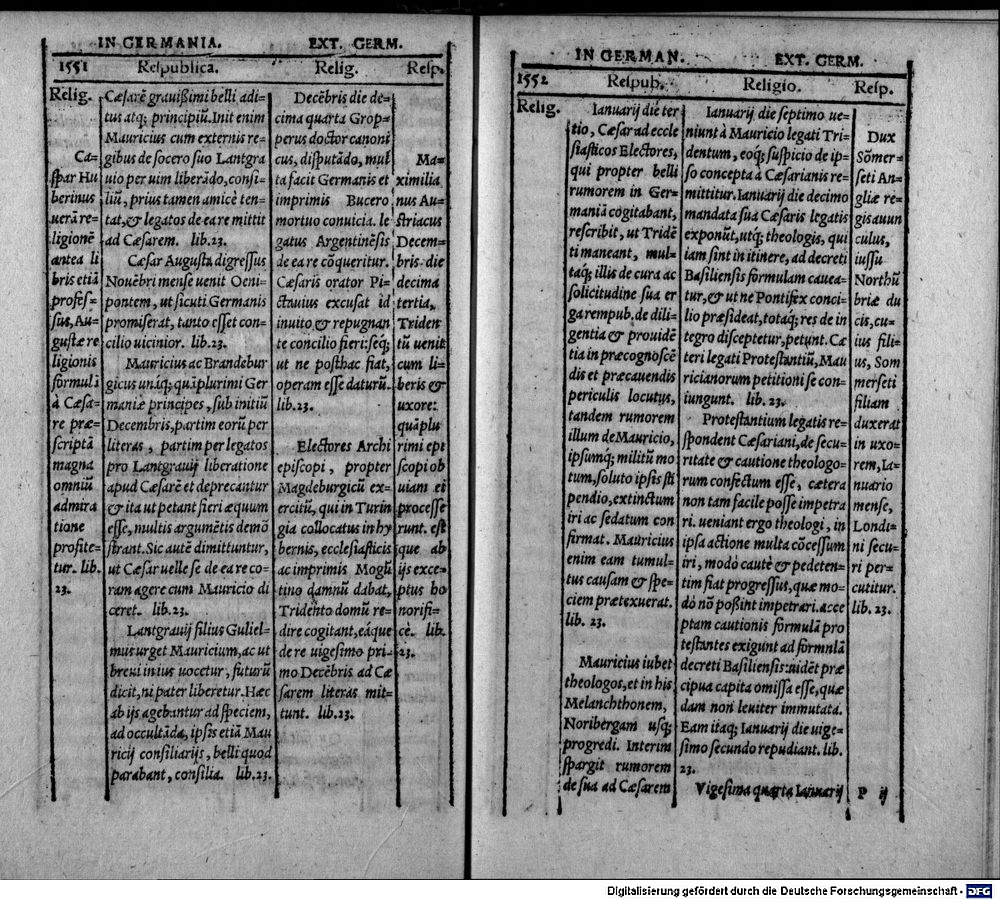 IN GERMANIA. EXT. GERM.
1551 Respublica. Relig. Resp.
Relig.
Ca-
spar Hu
berinus
uerā re-
ligionē
antea li
bris etiā
profes-
sus, Au-
gustæ re
ligionis
formulā
à Cæsa-
re præ-
scriptā
magna
omniū
admira
tione
profite-
tur. lib.
23.
Cæsarē grauißimi belli adi-
tus atq; principiū. Init enim
Mauricius cum externis re-
gibus de socero suo Lantgra
uio per uim liberādo, consi-
liū, prius tamen amicè ten-
tat, & legatos de ea re mittit
ad Cæsarem. lib. 23.
Cæsar Augusta digressus
Nouēbri mense uenit Oeni-
pontem, ut sicuti Germanis
promiserat, tanto esset con-
cilio uicinior. lib. 23.
Mauricius ac Brandebur
gicus unāq; quāplurimi Ger
maniæ principes, sub initiū
Decembris, partim eorū per
literas, partim per legatos
pro Lantgrauij liberatione
apud Cæsarē et deprecantur
& ita ut petant fieri æquum
esse, multis argumētis demō
strant. Sic autē dimittuntur,
ut Cæsar uelle se de ea re co-
ram agere cum Mauricio di
ceret. lib. 23.
Lantgrauij filius Guliel-
mus urget Mauricium, ac ut
breui in ius uocetur, futurū
dicit, ni pater liberetur. Hæc
ab ijs agebantur ad speciem,
ad occultāda, ipsis etiā Mau
ricij consiliarijs, belli quod
parabant, consilia. lib. 23.
Decēbris die de-
cima quarta Grop-
perus doctor canoni
cus, disputādo, mul
ta facit Germanis et
imprimis Bucero
mortuo conuicia. le
gatus Argentinēsis
de ea re cōqueritur.
Cæsaris orator Pi-
ctauius excusat id
inuito, & repugnan
te concilio fieri: seq;
ut ne posthac fiat,
operam esse daturū.
lib. 23.
Electores Archi
episcopi, propter
Magdeburgicū ex-
ercitū, qui in Turin
gia collocatus in hy
bernis, ecclesiasticis
ac imprimis Mogū
tino damnū dabat,
Tridento domū re-
dire cogitant, eáque
de re uigesimo pri-
mo Decēbris ad Cæ
sarem literas mit-
tunt. lib. 23.
Ma-
ximilia
nus Au-
striacus
Decem-
bris die
decima
tertia,
Triden
tū uenit
cum li-
beris &
uxore:
quāplu
rimi epi
scopi ob
uiam ei
processe
runt. est
que ab
ijs exce-
ptus ho
norifi-
cè. lib.
23.
IN GERMAN. EXT. GERM.
1552 Respub. Religio. Resp.
Relig.
Ianuarij die ter
tio, Cæsar ad eccle
siasticos Electores,
qui propter belli
rumorem in Ger-
maniā cogitabant,
rescribit, ut Tridē
ti maneant, mul-
taq; illis de cura ac
solicitudine sua er
ga rempub. de dili-
gentia & prouidē
tia in præcognoscē
dis et præcauendis
periculis locutus,
tandem rumorem
illum de Mauricio,
ipsumq; militū mo
tum, soluto ipsis sti
pendio, extinctum
iri ac sedatum con
firmat. Mauricius
enim eam tumul-
tus causam & spe-
ciem prætexuerat.
lib. 23.
Mauricius iubet
theologos, et in his
Melanchthonem,
Noribergam usq;
progredi. Interim
spargit rumorem
de sua ad Cæsarem
Ianuarij die septimo ue-
niunt à Mauricio legati Tri-
dentum, eoq; suspicio de ip-
so concepta à Cæsarianis re-
mittitur. Ianuarij die decimo
mandata sua Cæsaris legatis
exponūt, utq; theologis, qui
iam sint in itinere, ad decreti
Basiliensis formulam cauea-
tur, & ut ne Pontifex conci-
lio præsideat, totaq; res de in
tegro disceptetur, petunt. Cæ
teri legati Protestantiū, Mau
ricianorum petitioni se con-
iungunt. lib. 23.
Protestantium legatis re-
spondent Cæsariani, de secu-
ritate & cautione theologo-
rum confectum esse, cætera
non tam facile posse impetra
ri. ueniant ergo theologi, in
ipsa actione multa cōcessum
iri, modò cautè & pedeten-
tim fiat progressus, quæ mo-
dò nō poßint impetrari. acce
ptam cautionis formulā pro
testantes exigunt ad formnlā
decreti Basiliensis: uidēt præ
cipua capita omissa esse, quæ
dam non leuiter immutata.
Eam itaq; Ianuarij die uige-
simo secundo repudiant. lib.
23.
Vigesima quarta Ianuarij
Dux
Sōmer-
seti An-
gliæ re-
gis auun
culus,
iussu
Northū
briæ du
cis, cu-
ius fili-
us, Som
merseti
filiam
duxerat
in uxo-
rem, Ia-
nuario
mense,
Londi-
ni secu-
ri per-
cutitur.
lib. 23.
P ij
Digitalisierung gefördert durch die Deutsche Forschungsgemeinschaft - DFG